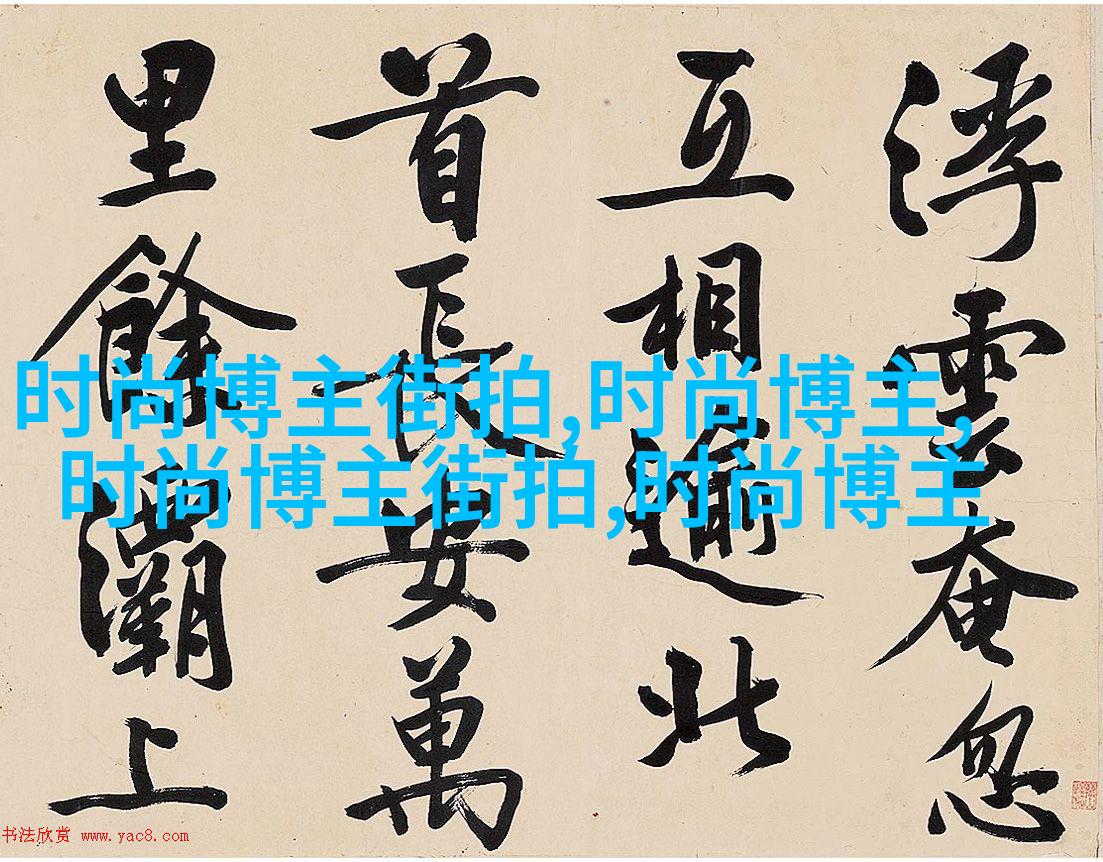 浮雲奄忽
互相逾北
首長安萬
里餘灞上
时尚博主街拍,时尚博主,
时尚博主街拍,时尚博主
书法欣赏 www.yac8.com